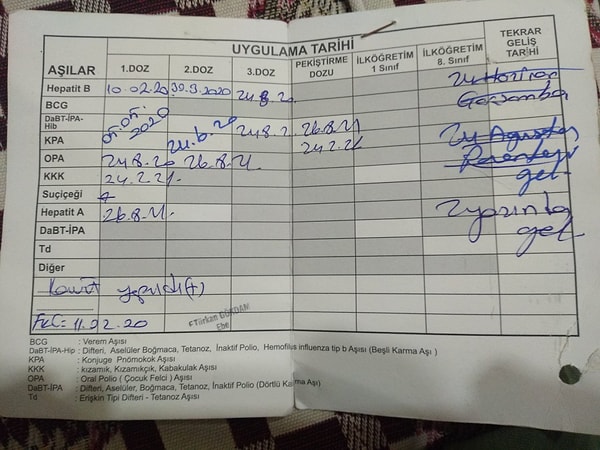 UYGULAMA TARİHİ
AŞILAR 1.DOZ 2.DOZ 3.DOZ PEKİŞTİRME DOZU İLKÖĞRETİM 1 Sınıf İLKÖĞRETİM 8. Sınıf TEKRAR GELİŞ TARİHİ
Hepatit B 10.02.20 30.3.2020 24.8.20 24 Haziran
BCG Çarşamba
DaBT-İPA-Hib 05.05.2020 24.6.20 24.8.2 26.8.21 24 Ağustos
KPA 24.2.21
OPA 24.8.20 26.8.21. Pazartesi
KKK 24.2.21. gel-
Suçiçeği
Hepatit A 26.8.21. 2 yaşında
DaBT-İPA gel-
Td
Diğer
yapıldı(+)
FKC= 11.02.20
Türkan
Ebe
BCG : Verem Aşısı
DaBT-İPA-Hip : Difteri, Aselüler Boğmaca, Tetanoz, İnaktif Polio, Hemofilus influenza tip b Aşısı (Beşli Karma Aşı )
KPA : Konjuge Pnömokok Aşısı
KKK : kızamık, Kızamıkçık, Kabakulak Aşısı
OPA : Oral Polio ( Çocuk Felci ) Aşısı
DaBT-İPA : Difteri, Aselüler Boğmaca, Tetanoz, İnaktif Polio (Dörtlü Karma Aşı )
Td : Erişkin Tipi Difteri - Tetanoz Aşısı